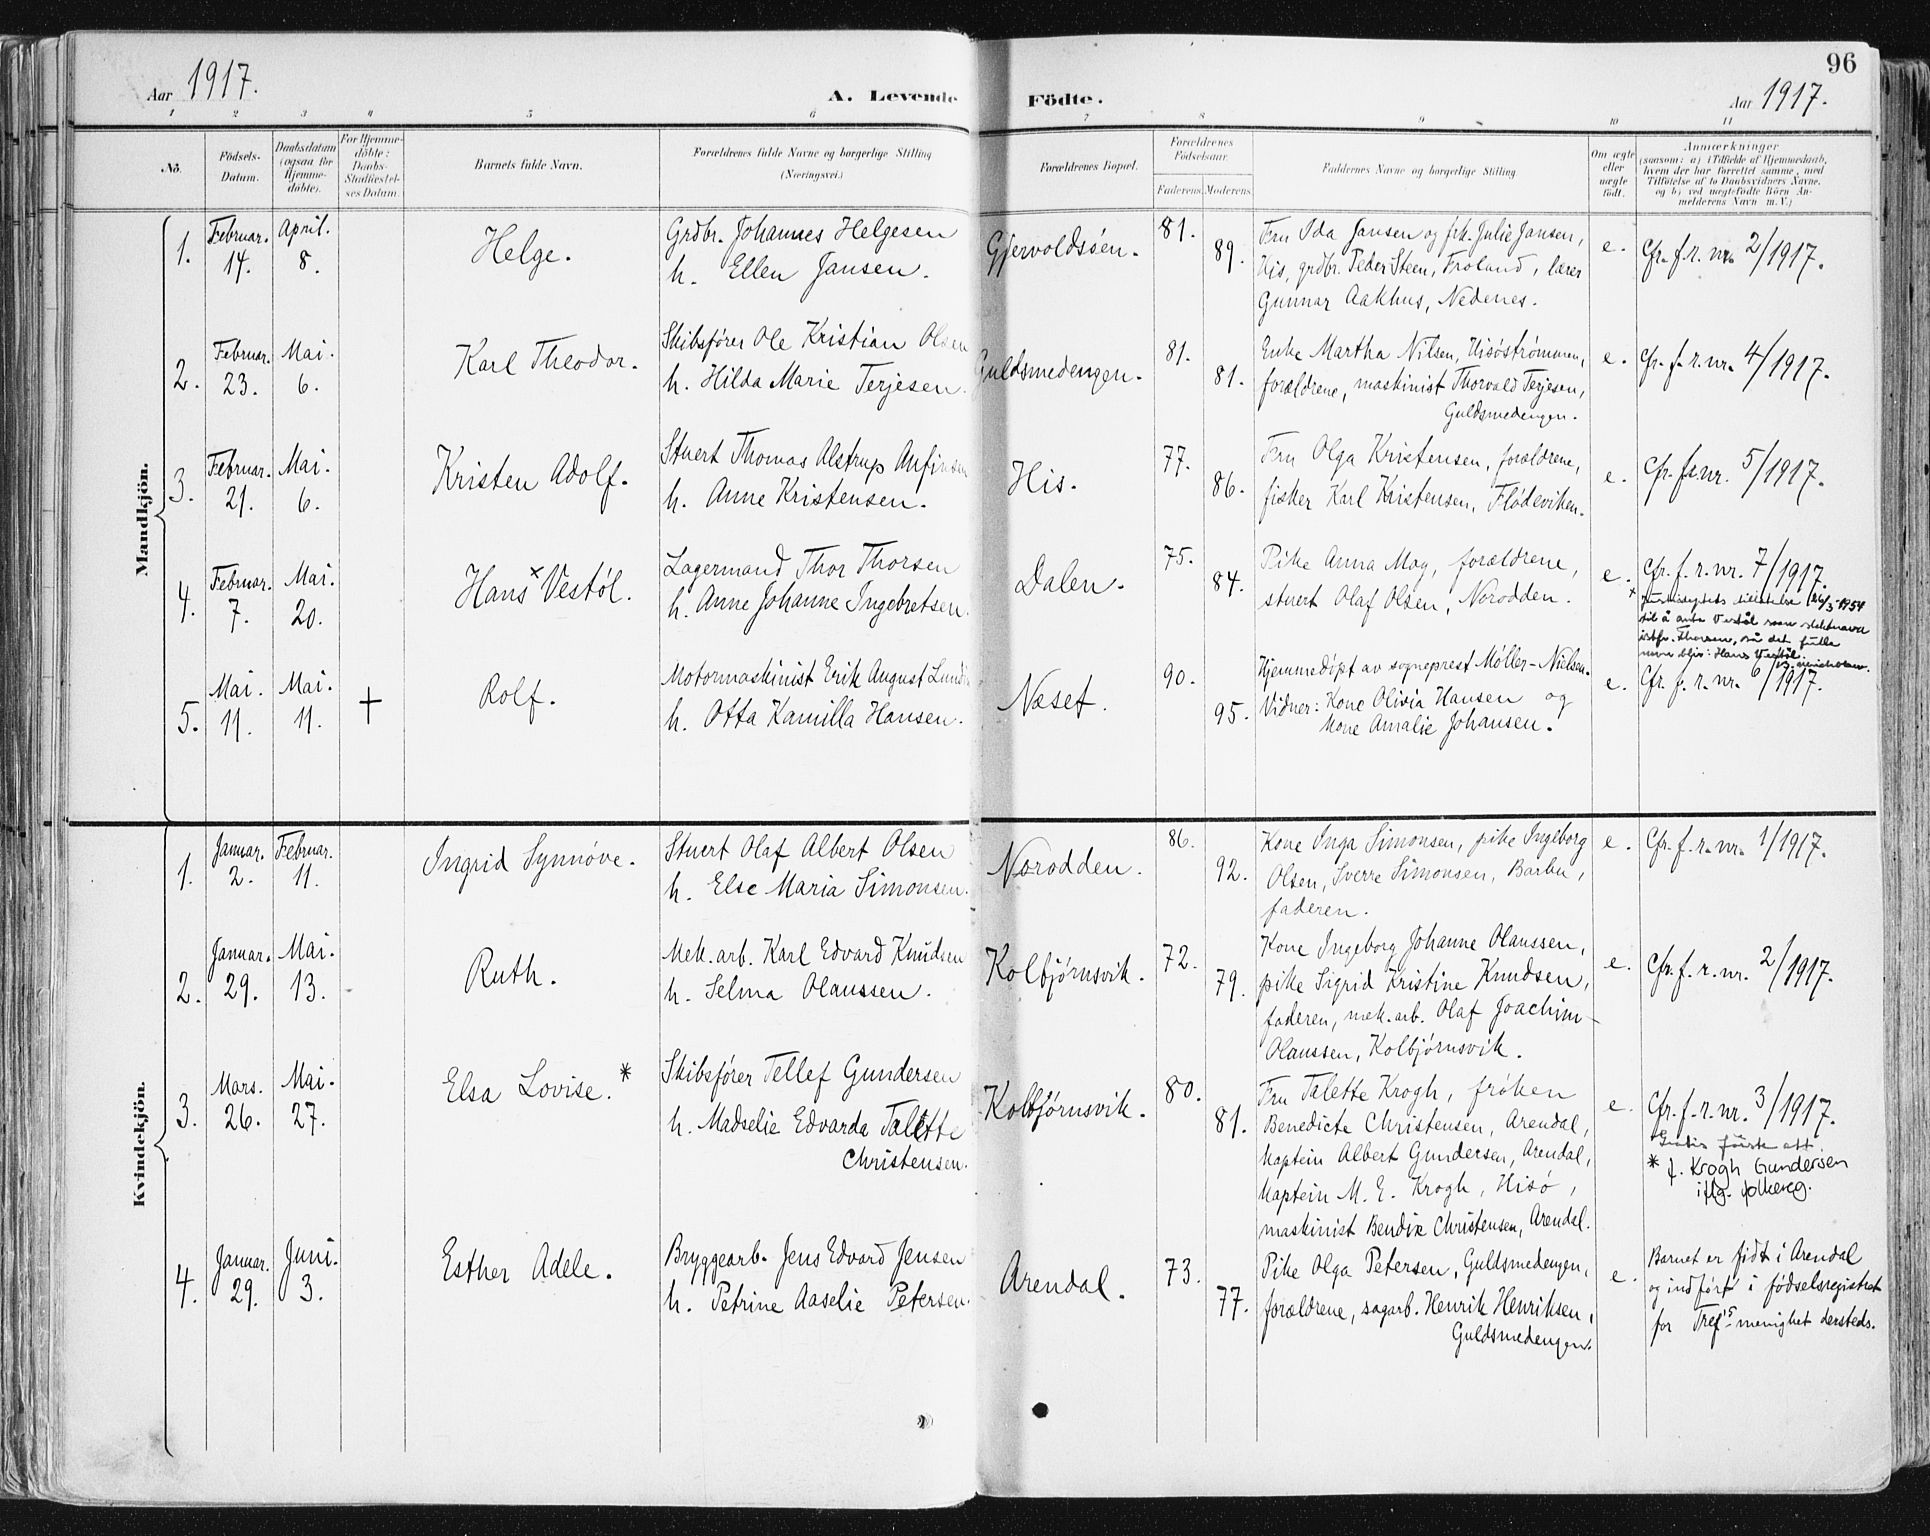 96
Aar 1917.
A. Levende Födte.
Aar 1917.
1 2 3 4 5 6 7 8 9 10 11
No.
Födsels-
Datum.
Daabsdatum
(ogsaa for
Hjemme-
döbte).
For Hjemme-
döbte:
Daabs-
Stadfæstel-
ses Datum.
Barnets fulde Navn.
Forældrenes fulde Navne og borgerlige Stilling
(Næringsvei.)
Forældrenes Bopæl.
Forældrenes
Födselsaar.
Faderens. Moderens.
Faddernes Navne og borgerlige Stilling
Om ægte
eller
uægte
födt.
Anmærkninger
(saasom: a) i Tilfælde af Hjemmedaab,
hvem der har forrettet samme, med
Tilföielse af to Daabsvidners Navne.
og b) ved uægtefödte Börn An-
melderens Navn m. V.)
Mandkjön.
1.
Februar.
14.
April.
8.
Helge.
Grdbr. Johannes Helgesen
h. Ellen Jansen.
Gjervoldsöen.
81.
89.
Fru Ida Jansen og frk. Julie Jansen,
His, grdbr. Peder Steen, Froland, lærer
Gunnar Aakhus, Nedenes.
e.
Cfr. f. r. nr. 2/1917.
2.
Februar.
23.
Mai.
6.
Karl Theodor.
Skibsfører Ole Kristian Olsen
h. Hilda Marie Terjesen.
Guldsmedengen.
81.
81.
Enke Martha Nilsen, Hisöströmmen,
forældrene, maskinist Thorvald Terjesen,
Guldsmedengen.
e.
Cfr. f. r. nr. 4/1917.
3.
Februar.
21.
Mai.
6.
Kristen Adolf.
Stuert Thomas Alstrup Anfinsen
h. Anne Kristensen.
His.
77.
86.
Fru Olga Kristensen, forældrene,
fisker Karl Kristensen, Flödeviken.
e.
Cfr. f. r. nr. 5/1917.
4.
Februar.
7.
Mai.
20.
Hans × Vestöl.
Lagermand Thor Thorsen
h. Anne Johanne Ingebretsen.
Dalen.
75.
84.
Pike Anna Moy, forældrene,
stuert Olaf Olsen, Norodden.
e.
Cfr. f. r. nr. 7/1917.
× tillatelse 26/3-1954
til å anta Vestøl som slektsnavn
istfr. Thorsen, så det fulle
navn blir: Hans Vestøl.
5.
Mai.
11.
Mai.
11.
+
Rolf.
Motormaskinist Erik August Lundin
h. Otta Kamilla Hansen.
Næset.
90.
95.
Hjemmedöpt av sogneprest Möller-Nielsen.
Vidner: Kone Olivia Hansen og
kone Amalie Johansen.
e.
Cfr. f. r. nr. 6/1917.
Kvindekjön.
1.
Januar.
2.
Februar.
11.
Ingrid Synnöve.
Stuert Olaf Albert Olsen
h. Else Maria Simonsen.
Norodden.
86.
92.
Kone Inga Simonsen, pike Ingeborg
Olsen, Sverre Simonsen, Barbu,
faderen.
e.
Cfr. f. r. nr. 1/1917.
2.
Januar.
29.
Mai.
13.
Ruth.
Mek. arb. Karl Edvard Knudsen
h. Selma Olaussen.
Kolbjörnsvik.
72.
79.
Kone Ingeborg Johanne Olaussen,
pike Sigrid Kristine Knudsen,
faderen, mek. arb. Olaf Joachim
Olaussen, Kolbjörnsvik.
e.
Cfr. f. r. nr. 2/1917.
3.
Mars.
26.
Mai.
27.
Elsa Lovise. *
Skibsförer Tellef Gundersen
h. Madselie Edvarda Talette
Christensen.
Kolbjörnsvik.
80.
81.
Fru Talette Krogh, fröken
Benedicte Christensen, Arendal,
kaptein Albert Gundersen, Arendal,
kaptein M. E. Krogh, Hisö,
maskinist Bendix Christensen, Arendal.
e.
Cfr. f. r. nr. 3/1917.
att.
* f. Krogh Gundersen
iflg. folkereg.
4.
Januar.
29.
Juni.
3.
Esther Adele.
Bryggearb. Jens Edvard Jensen
h. Petrine Aaselie Petersen.
Arendal.
73.
77.
Pike Olga Petersen, Guldsmedengen,
forældrene, sagarb. Henrik Henriksen,
Guldsmedengen.
e.
Barnet er födt i Arendal
og indfört i födselsregistret
for Tref's menighet dersteds.